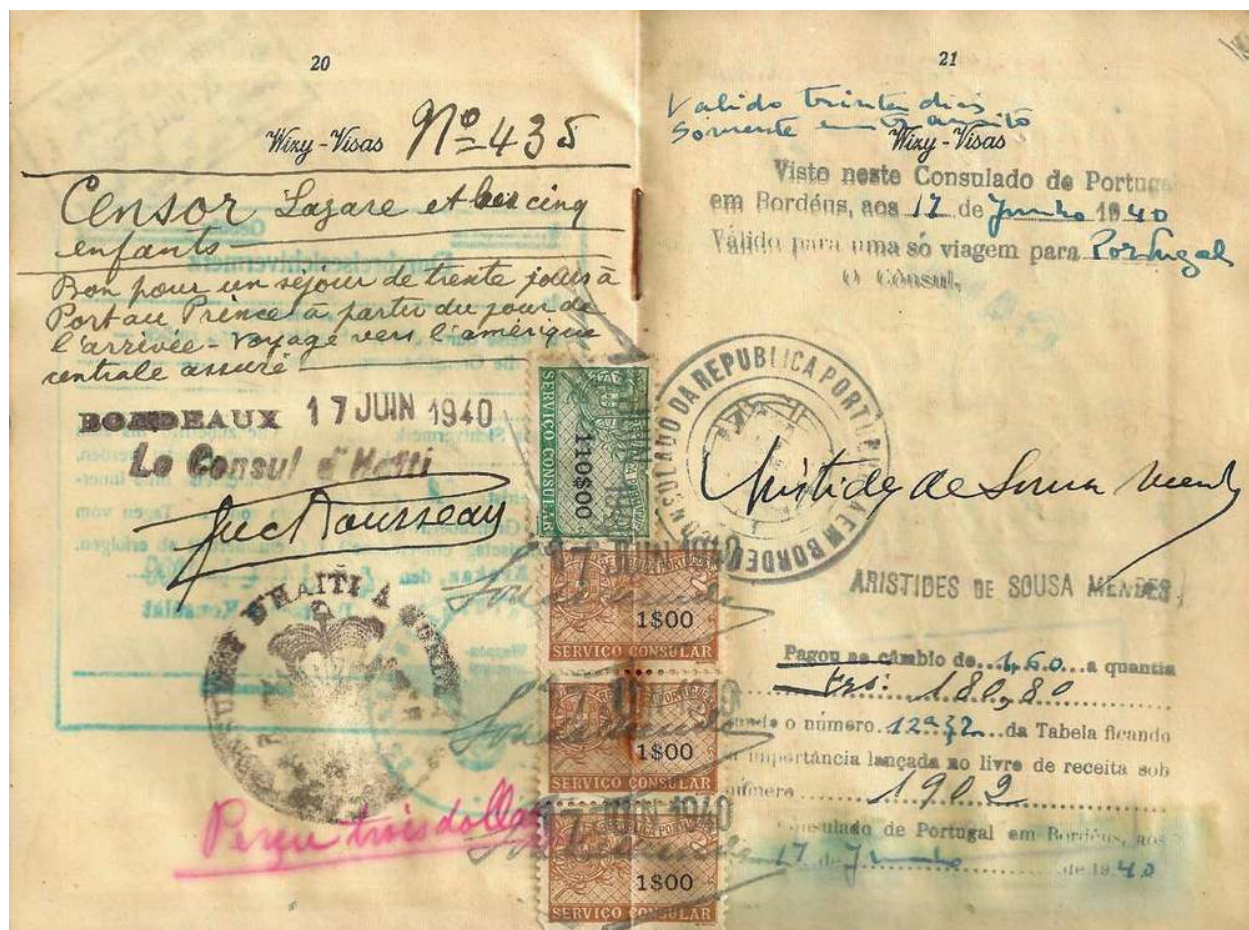 20
Wizy-Visas Nº 435
Censor Lazare et ses cinq
enfants
Bon pour un séjour de trente jours à
Port au Prince à partir du jour de
l'arrivée - Voyage vers l'amérique
centrale assuré
BORDEAUX 17 JUIN 1940
Le Consul d'Haïti
D'HAITI A
Perçu trois dollars
SERVIÇO CONSULAR
110$00
17 JUIN 1940
1$00
SERVIÇO CONSULAR
1$00
SERVIÇO CONSULAR
17 JUIN 1940
1$00
SERVIÇO CONSULAR
21
Valido trinta dias
somente em transito
Wizy-Visas
Visto neste Consulado de Portugal
em Bordéus, aos 17 de Junho 1940
Válido para uma só viagem para Portugal
O Cônsul,
CONSULADO DA REPUBLICA PORTUGUEZA EM BORDEUS
Aristides de Sousa Mendes
ARISTIDES DE SOUSA MENDES
Pagou ao câmbio de 1,60 a quantia
Frs: 180,80
o número 12ª 32 da Tabela ficando
a importância lançada no livro de receita sob
número 1902
Consulado de Portugal em Bordéus, aos
17 de Junho de 1940